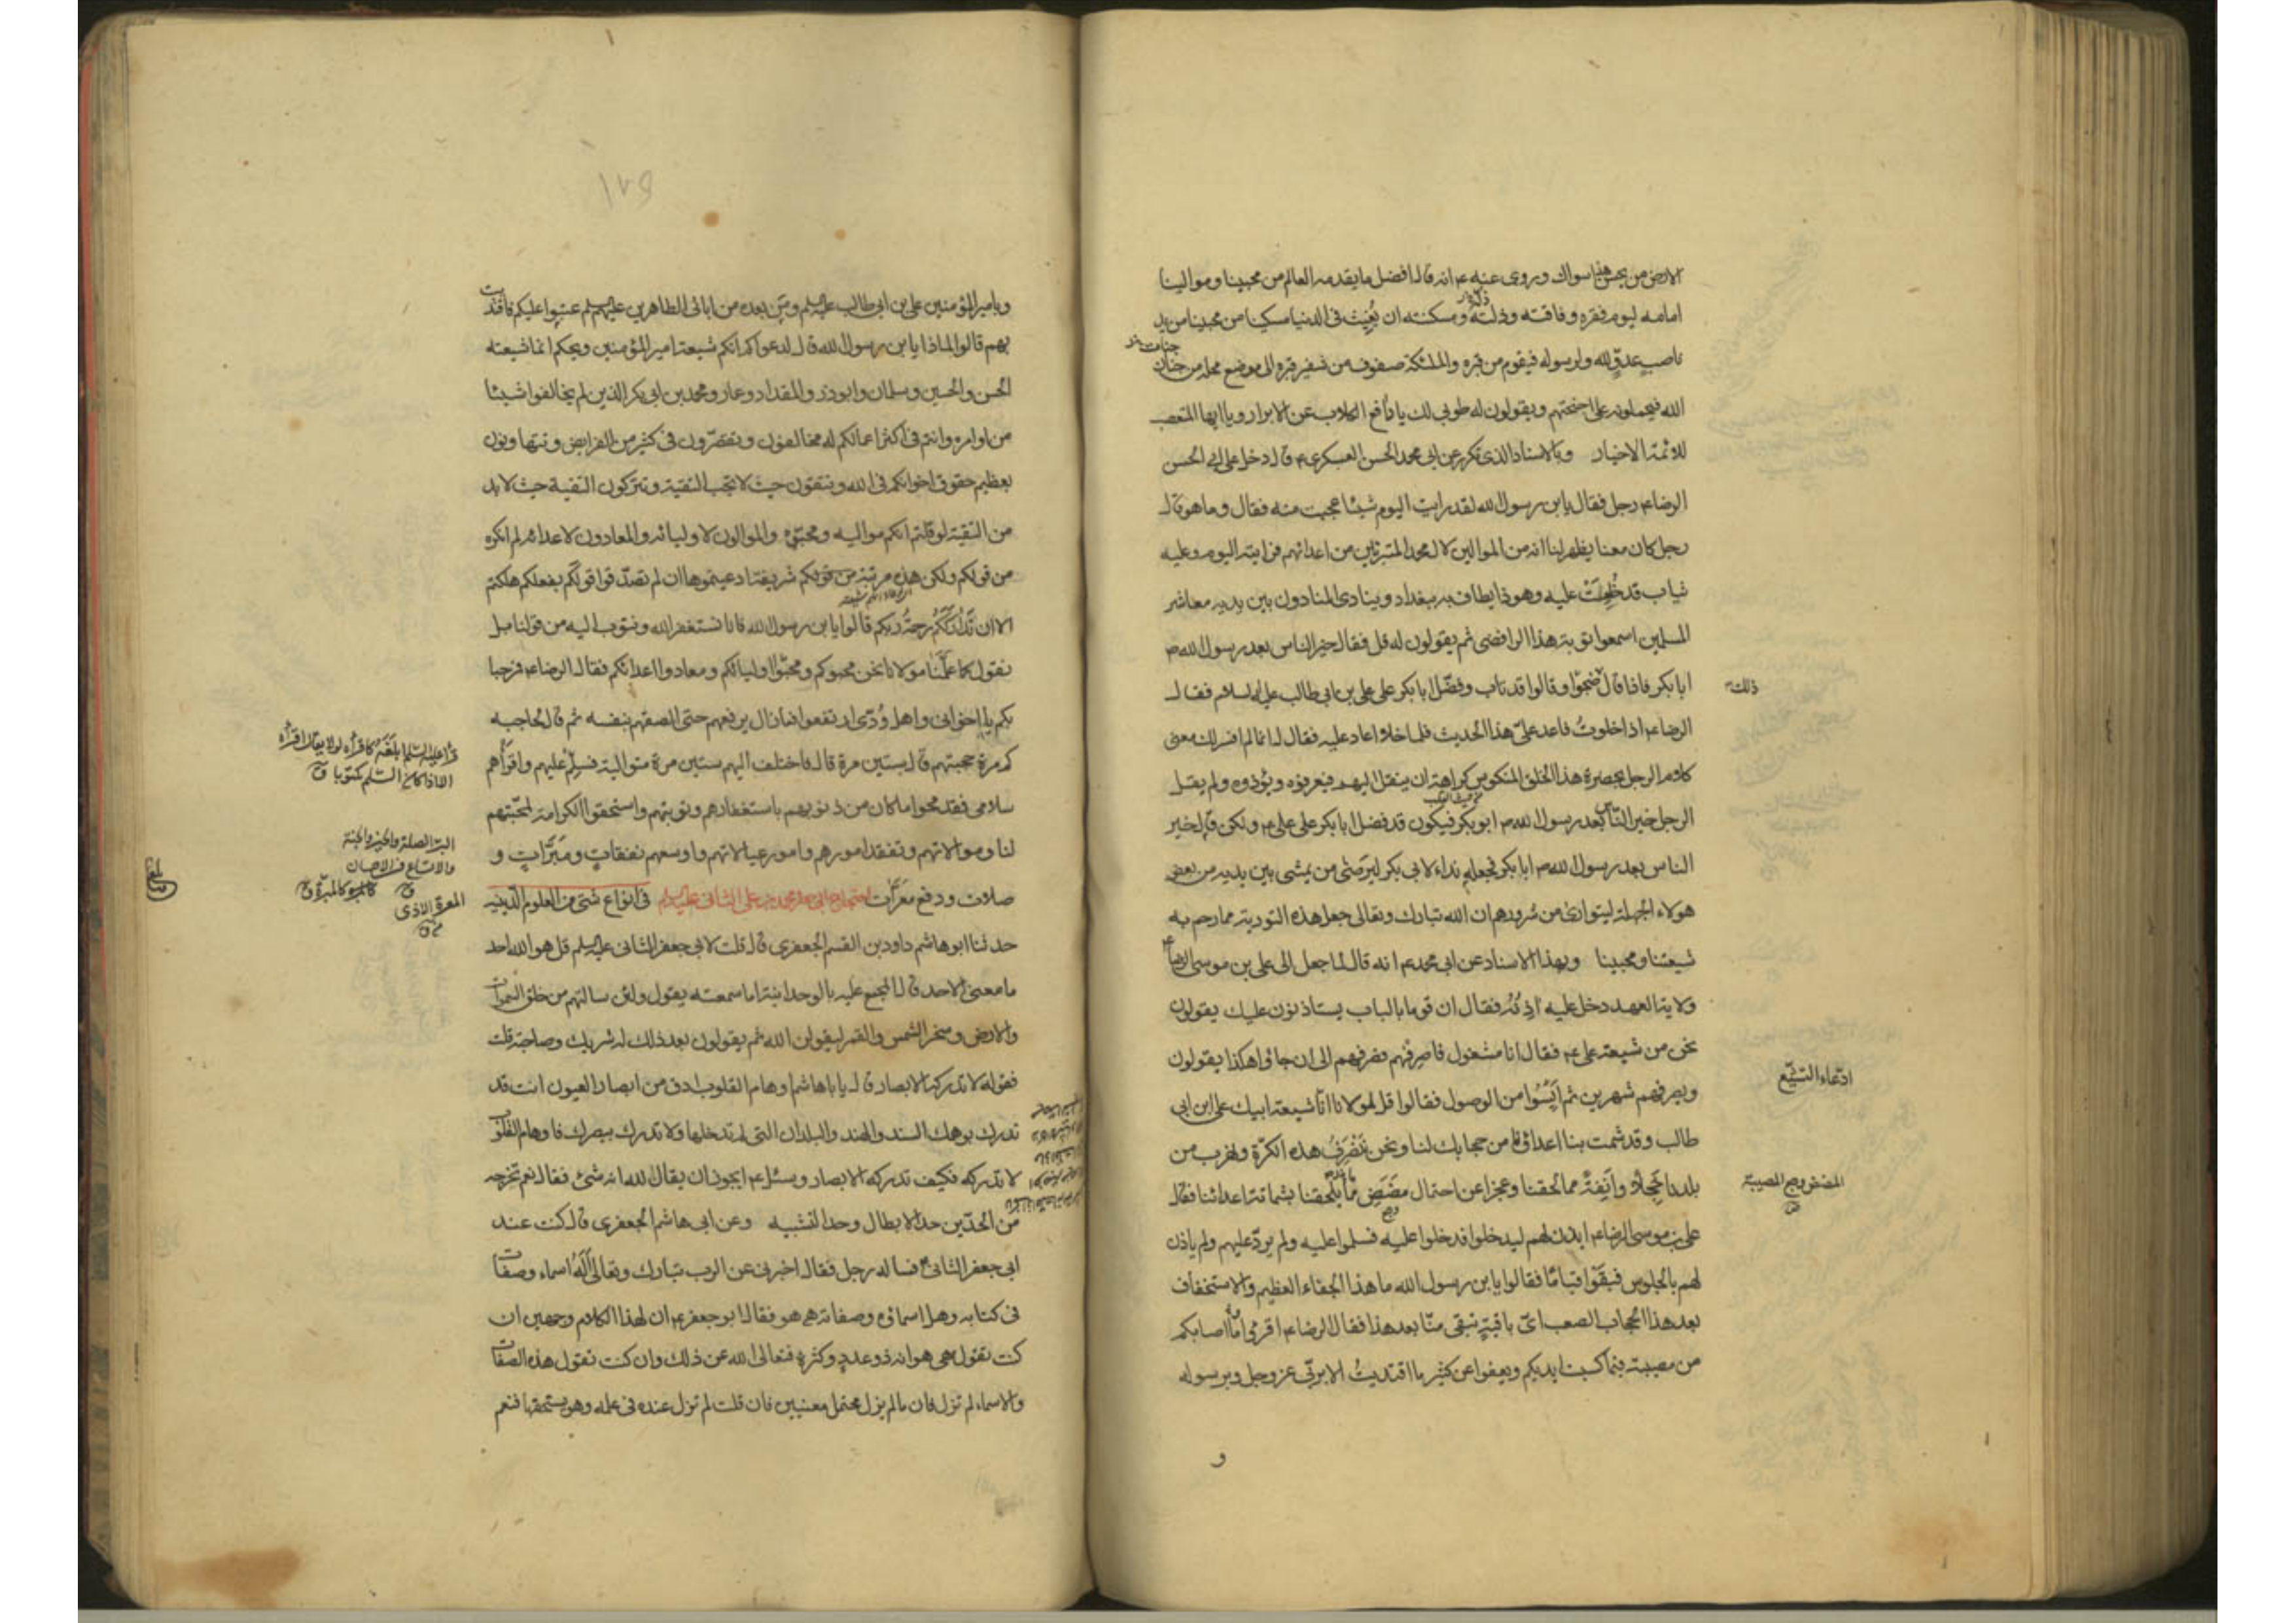 الارض من بحس هناسواك وروى عنه ع انه قال افضل ما يقدمه العالم من محبينا وموالينا
امامه ليوم فقره وفاقته وذلته ومسكنته ان يُغيث فى الدنيا مسكينا من محبينا من يد
ناصب عدوّ لله ولرسوله فيقوم من قبره والملئكة صفوف من شفير قبره الى موضع محله من جنان
جنات
الله فيحملونه على اجنحتهم ويقولون له طوبى لك يا دافع الكلاب عن الابرار ويا ايها المتعصب
للائمة الاخيار وبالاسناد الذى تكرر عن ابى محمد الحسن العسكرى ع قال دخل على ابى الحسن
الرضا ع رجل فقال يابن رسول الله لقد رايت اليوم شيئا عجبت منه فقال وما هو قال
رجل كان معنا يظهر لنا انه من الموالين لال محمد المتبرئين من اعدائهم فرايته اليوم وعليه
ثياب قد خُلِعَتْ عليه وهو ذا يطاف به ببغداد وينادى المنادون بين يديه معاشر
المسلمين اسمعوا توبة هذا الرافضى ثم يقولون له قل فقال خير الناس بعد رسول الله ص
ابا بكر فاذا قال ضجوّا وقالوا قد تاب وفضّل ابا بكر على على بن ابى طالب عليه السلام فقال
ذلك
الرضا ع اذا خلوتُ فاعد علىّ هذا الحديث فلما خلا اعاد عليه فقال له انما لم افسر لك معنى
كلام الرجل بحضرة هذا الخلق المنكوس كراهة ان ينقل اليهم فيعرفوه ويؤذوه ولم يقل
الرجل خير الناس بعد رسول الله ص ابو بكر فيكون قد فضل ابا بكر على على ع ولكن قال خير
الناس بعد رسول الله ص ابا بكر فجعله نداء لابى بكر ليرضى من يمشى بين يديه من بعض
هولاء الجهلة ليتوارى من شرورهم ان الله تبارك وتعالى جعل هذه التورية مما رحم به
شيعتنا ومحبينا وبهذا الاسناد عن ابى محمد ع انه قال لما جعل الى على بن موسى الرضا ع
ولاية العهد دخل عليه اذِنُه فقال ان قوما بالباب يستاذنون عليك يقولون
نحن من شيعة على ع فقال انا مشغول فاصرفهم فصرفهم الى ان جاؤا هكذا يقولون
ادّعاء التشيّع
ويصرفهم شهرين ثم اَيِسُوا من الوصول فقالوا قل لمولانا انّا شيعة ابيك على ابن ابى
طالب وقد شمت بنا اعداؤنا من حجابك لنا ونحن نَنْصَرِفُ هذه الكرّة ونهرب من
بلدنا خَجلًا وانَفِةً مما لحقنا وعجزا عن احتمال مضَضِ ما يلحقنا بشماتة اعدائنا فقال
المضض وجع المصيبة
على بن موسى الرضا ع ايذن لهم ليدخلوا فدخلوا عليه فسلموا عليه ولم يردّ عليهم ولم ياذن
لهم بالجلوس فبقَوْا قيامًا فقالوا يابن رسول الله ما هذا الجفاء العظيم والاستخفاف
بعد هذا الحجاب الصعب اىّ باقية تبقى منّا بعد هذا فقال الرضا ع اقرؤا ما اصابكم
من مصيبة فبما كسبت ايديكم ويعفوا عن كثير ما اقتديتُ الا بربّى عز وجل وبرسوله
و
١٧٥
وبامير المؤمنين على بن ابى طالب عليه السلم ومَن بعده من ابائى الطاهرين عليهم السلم عتبوا عليكم فاقتديت
بهم قالوا لماذا يابن رسول الله قال لدعواكم انكم شيعة امير المؤمنين ويحكم انما شيعته
الحسن والحسين وسلمان وابوذر والمقداد وعمار ومحمد بن ابى بكر الذين لم يخالفوا شيئا
من اوامره وانتم فى اكثر اعمالكم له مخالفون وتقصّرون فى كثير من الفرايض وتتهاونون
بعظيم حقوق اخوانكم فى الله وتتقون حيث لا تجب التقية وتتركون التقية حيث لا بد
من التقية لو قلتم انكم مواليه ومحبّوه والموالون لاوليائه والمعادون لاعدائه لم انكره
من قولكم ولكن هذه مرتبة شريفة ادعيتموها ان لم تصدّقوا قولَكُم بفعلكم هلكتم
الا ان تَدارَكَكُم رحمةُ ربكم قالوا يابن رسول الله فانا نستغفر الله ونتوب اليه من قولنا بل
نقول كما علّمَنا مولانا نحن محبوكم ومحبّوا اوليائكم ومعادوا اعدائكم فقال الرضا ع فرحبا
بكم يا اخوانى واهل وُدّى ارتفعوا فما زال يرفعهم حتى الصقهم بنفسه ثم قال لحاجبه
كم مرة حجبتهم قال ستين مرة قال فاختلف اليهم ستين مرة متوالية فسلِّمْ عليهم واقرأهم
قرأ عليه السّلم ابلغه كاقرأه او لا يقال اقرأه
الا اذا كان السّلم مكتوبا ق
سلامى فقد محوا ما كان من ذنوبهم باستغفارهم وتوبتهم واستحقوا الكرامة لمحبّتهم
لنا وموالاتهم وتفقد امورهم وامور عيالاتهم واوسعهم نفقاتٍ ومبَرّاتٍ و
البرّ الصلة والخير والجنة
والاتساع فى الاحسان
صلاتٍ ودفع معرّات احتجاج ابى جعفر محمد بن على الثانى عليه السلم فى انواع شتى من العلوم الدينية
المعرة الاذى
حدثنا ابو هاشم داود بن القسم الجعفرى قال قلت لابى جعفر الثانى عليه السلم قل هو الله احد
ما معنى الاحد قال المجمع عليه بالوحدانية اما سمعته يقول ولئن سالتهم من خلق السموات
والارض وسخر الشمس والقمر ليقولن الله ثم يقولون بعد ذلك له شريك وصاحبة قلت
فقوله لا تدركه الابصار قال يا ابا هاشم اوهام القلوب ادق من ابصار العيون انت قد
تدرك بوهمك السند والهند والبلدان التى لم تدخلها ولا تدرك ببصرك فاوهام القلوب
لا تدركه فكيف تدركه الابصار وسئل ع ايجوز ان يقال لله انه شئ فقال نعم تخرجه
من الحدّين حد الابطال وحد التشبيه وعن ابى هاشم الجعفرى قال كنت عند
ابى جعفر الثانى ع فساله رجل فقال اخبرنى عن الرب تبارك وتعالى أَلَهُ اسماء وصفات
فى كتابه وهل اسمائه وصفاته هى هو فقال ابو جعفر ع ان لهذا الكلام وجهين ان
كنت تقول هى هو انه ذو عددٍ وكثرةٍ فتعالى الله عن ذلك وان كنت تقول هذه الصفات
والاسماء لم تزل فان ما لم يزل محتمل معنيين فان قلت لم تزل عنده فى علمه وهو يستحقها فنعم